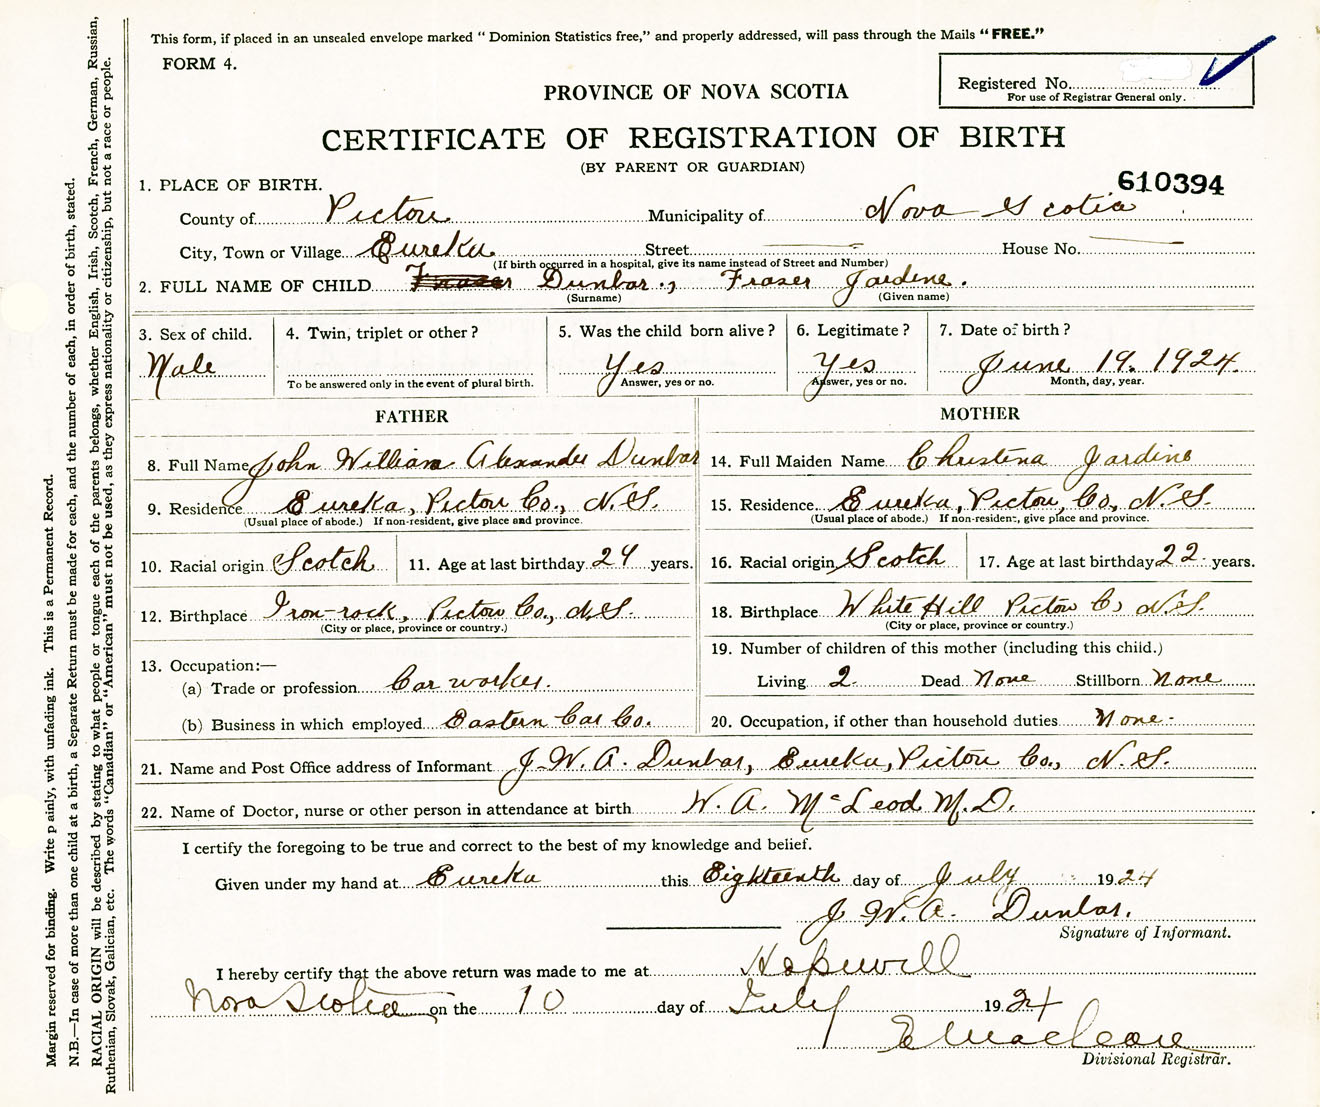 This form, if placed in an unsealed envelope marked " Dominion Statistics free," and properly addressed, will pass through the Mails "FREE."
FORM 4.
Registered No.
For use of Registrar General only.
PROVINCE OF NOVA SCOTIA
CERTIFICATE OF REGISTRATION OF BIRTH
(BY PARENT OR GUARDIAN)
610394
1. PLACE OF BIRTH.
County of Pictou Municipality of Nova Scotia
City, Town or Village Eureka Street House No.
(If birth occurred in a hospital, give its name instead of Street and Number)
2. FULL NAME OF CHILD Fraser Dunbar., Fraser Jardine.
(Surname) (Given name)
3. Sex of child. 4. Twin, triplet or other? 5. Was the child born alive? 6. Legitimate? 7. Date of birth?
Male Yes Yes June 19. 1924.
To be answered only in the event of plural birth. Answer, yes or no. Answer, yes or no. Month, day, year.
FATHER MOTHER
8. Full Name John William Alexander Dunbar 14. Full Maiden Name Christena Jardine
9. Residence Eureka, Pictou Co., N.S. 15. Residence Eureka, Pictou, Co., N.S.
(Usual place of abode.) If non-resident, give place and province. (Usual place of abode.) If non-resident, give place and province.
10. Racial origin Scotch 11. Age at last birthday 24 years. 16. Racial origin Scotch 17. Age at last birthday 22 years.
12. Birthplace Iron-rock, Pictou Co., N.S. 18. Birthplace White Hill Pictou Co N.S.
(City or place, province or country.) (City or place, province or country.)
13. Occupation:— 19. Number of children of this mother (including this child.)
(a) Trade or profession Car worker. Living 2. Dead None Stillborn None
(b) Business in which employed Eastern Car Co. 20. Occupation, if other than household duties None.
21. Name and Post Office address of Informant J. W. A. Dunbar, Eureka, Pictou Co., N.S.
22. Name of Doctor, nurse or other person in attendance at birth W. A. McLeod M.D.
I certify the foregoing to be true and correct to the best of my knowledge and belief.
Given under my hand at Eureka this Eighteenth day of July 1924
J. W. A. Dunbar.
Signature of Informant.
I hereby certify that the above return was made to me at Hopewell
Nova Scotia on the 10 day of July 1924
Divisional Registrar.
Margin reserved for binding. Write p ainly, with unfading ink. This is a Permanent Record.
N.B.—In case of more than one child at a birth, a Separate Return must be made for each, and the number of each, in order of birth, stated.
RACIAL ORIGIN will be described by stating to what people or tongue each of the parents belongs, whether English, Irish, Scotch, French, German, Russian,
Ruthenian, Slovak, Galician, etc. The words "Canadian" or "American" must not be used, as they express nationality or citizenship, but not a race or people.